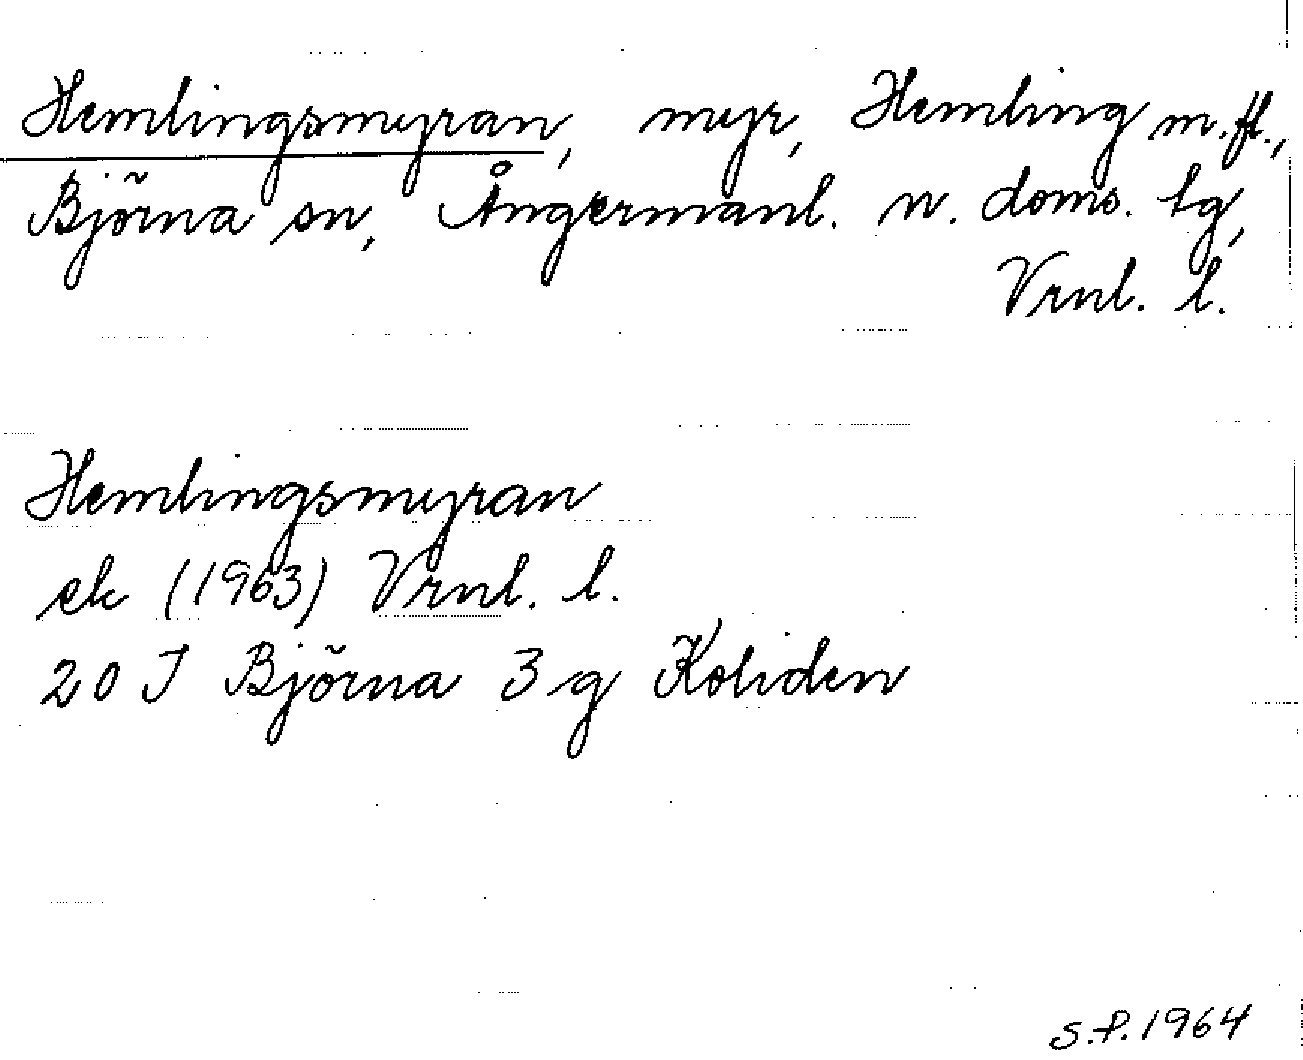 Hemlingsmyran, myr, Hemling m.fl.,
Björna sn, Ångermanl. n. doms. tg,
Vrnl. l.
Hemlingsmyran
ek (1963) Vrnl. l.
20 J Björna 3 g Koliden
S.P. 1964